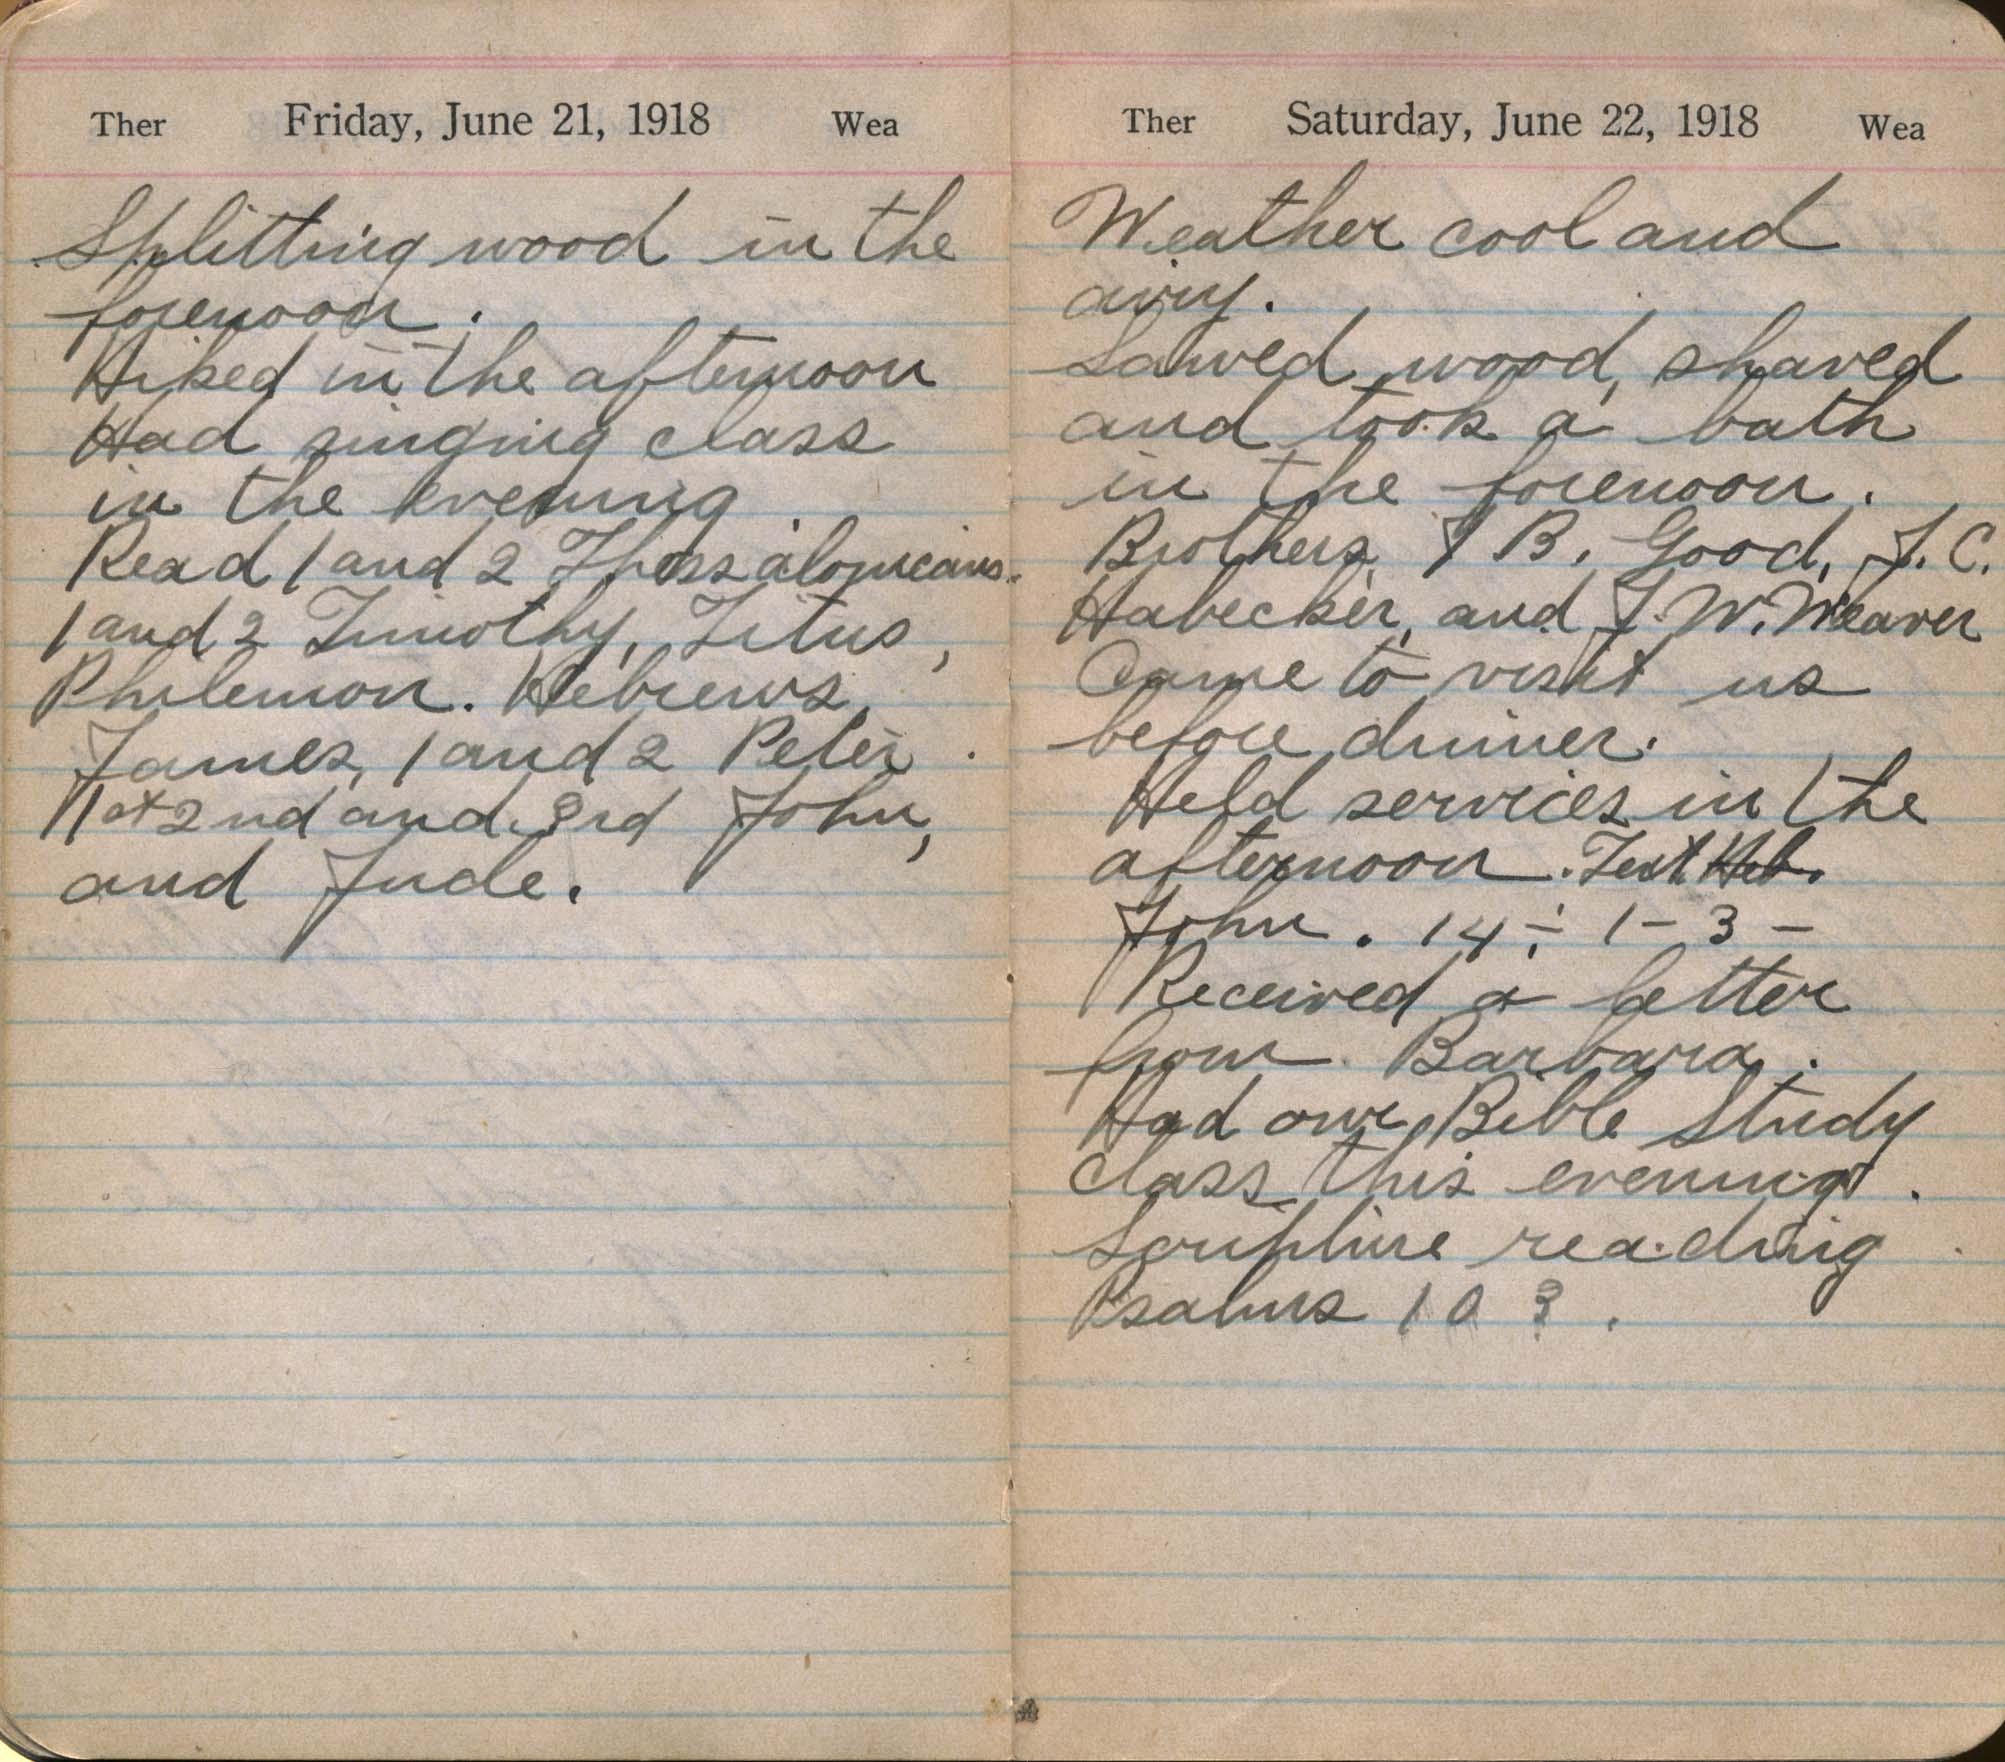 Ther Friday, June 21, 1918 Wea
Splitting wood in the
forenoon.
Hiked in the afternoon
Had singing class
in the evening
Read 1 and 2 Thessalonians.
1 and 2 Timothy, Titus,
Philemon. Hebrews,
James, 1 and 2 Peter.
1st 2nd and 3rd John,
and Jude.
Ther Saturday, June 22, 1918 Wea
Weather cool and
airy.
Sawed wood, shaved
and took a bath
in the forenoon.
Brothers I B. Good, J. C.
Habecker, and J. W. Weaver
Came to visit us
before dinner.
Held services in the
afternoon. Text Heb.
John. 14: 1-3-
Received a letter
from Barbara.
Had our Bible Study
Class this evening.
Scripture reading
Psalms 103.